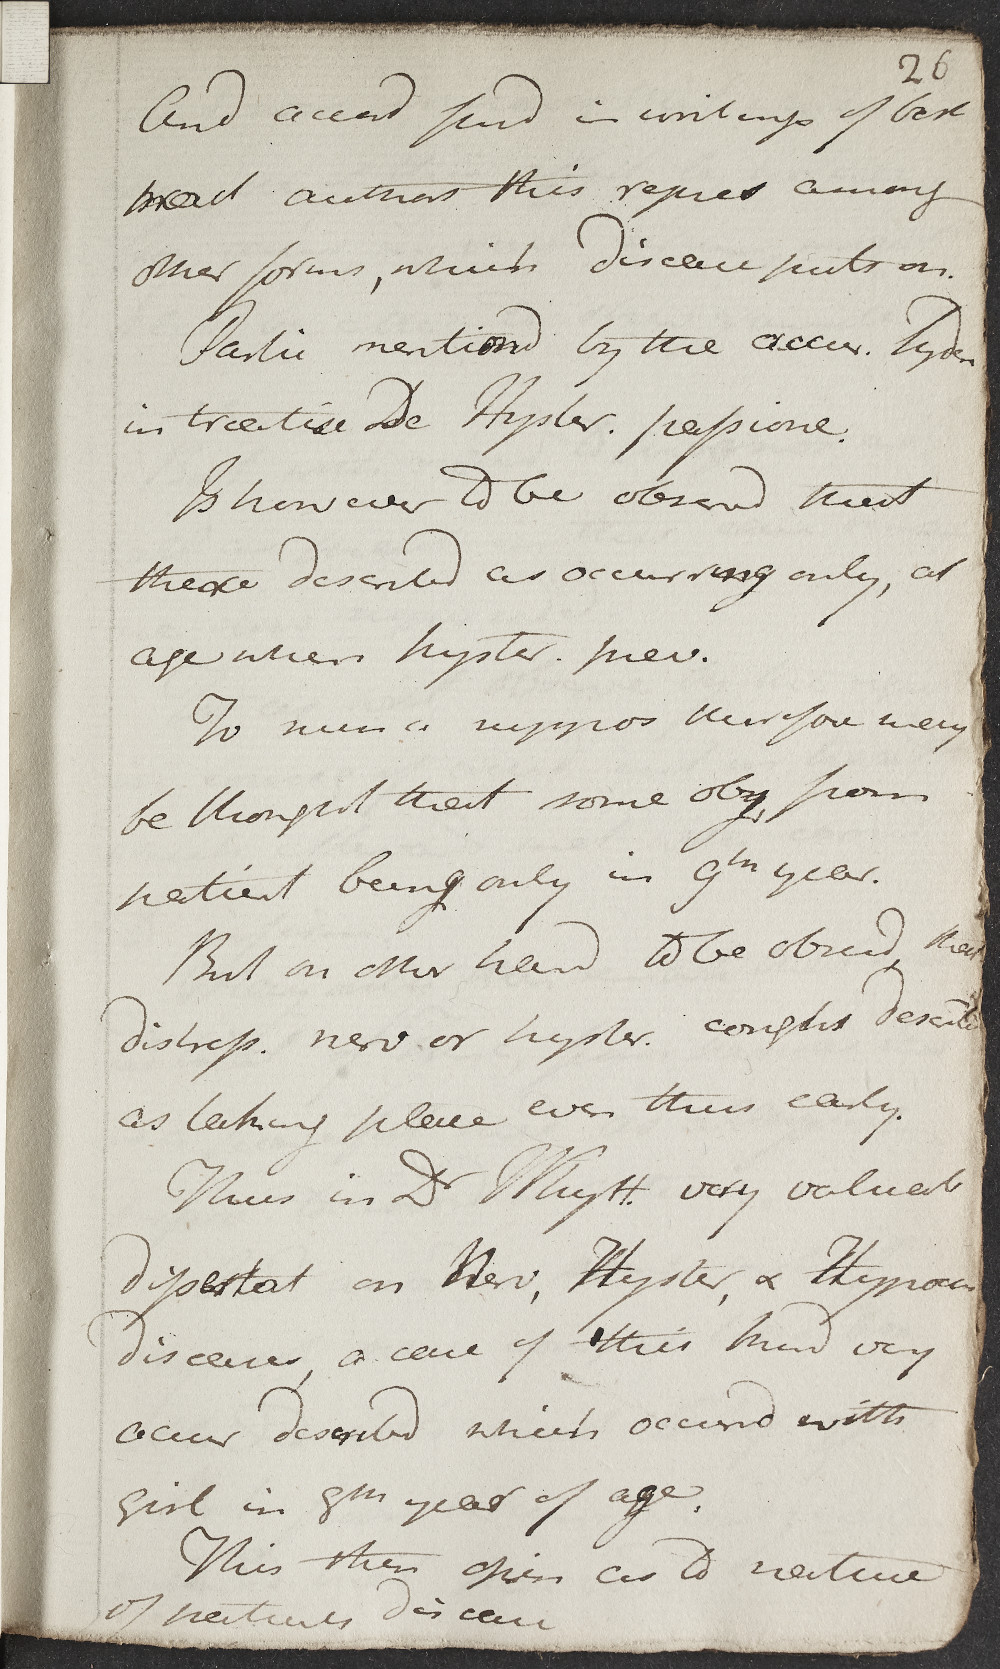 26
And accord find in writings of best
med authors this repres among
other forms, which disease puts on.
Partic mentiond by the accur. Syden
in treatise De Hyster. passione.
Is however to be observd that
there describd as occurring only, at
age when hyster. prev.
To such a suppos therefore may
be thought that some obj, from
patient being only in 9th year.
But on other hand to be observd, that
distress. nerv or hyster. coughs describ
as taking place even thus early.
Thus in Dr Whytt. very valuab
dissertat on Nerv, Hyster, & Hypocon
diseases, a case of this kind very
accur describd which occurrd with
girl in 8th year of age.
This then opin as to nature
of patients disease